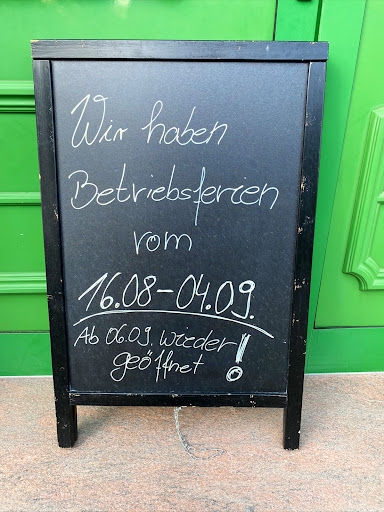 Wir haben
Betriebsferien
vom
16.08-04.09.
Ab 06.09. wieder
geöffnet!